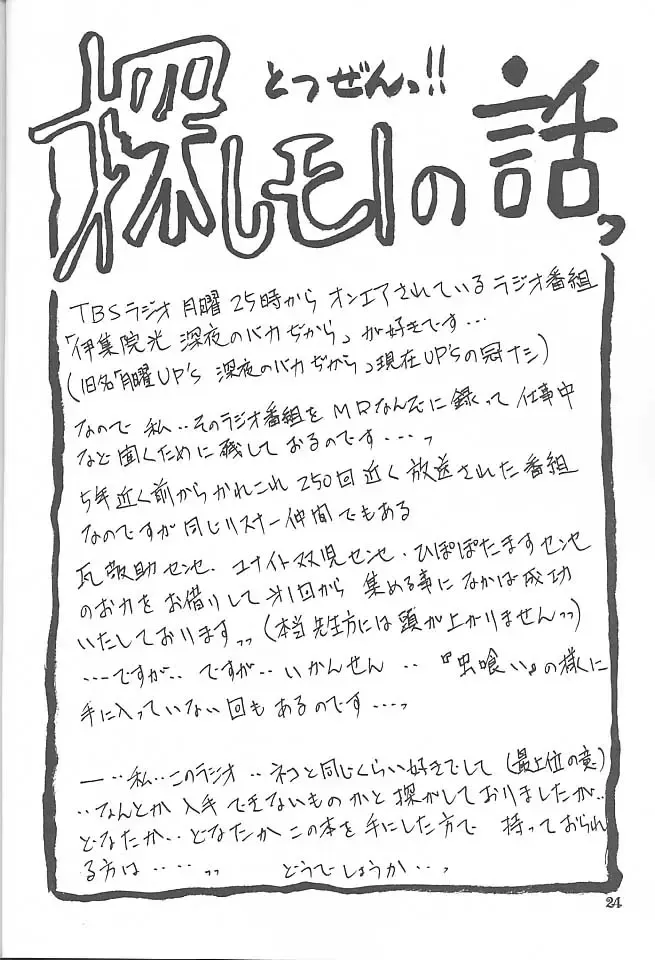 とつぜんっ!!
探しモノの話っ
TBSラジオ 月曜 25時から オンエアされている ラジオ番組
「伊集院光 深夜のバカぢから」が好きです…
(旧名「月曜UP's 深夜のバカぢから」現在UP'sの冠ナシ)
なので 私‥そのラジオ番組を MDなんぞに 録って 仕事中
など 聞くために 残して おるのです‥‥っ
5年近く前から かれこれ 250回近く 放送された 番組
なのですが 同じリスナー仲間でもある
瓦敬助センセ、ユナイト双児センセ・ひぽぽたますセンセ
のお力を お借りして 第1回から 集める事に なかば成功
いたしております〟(本当 先生方には 頭が上がりませんっっ)
‥‥ですが‥ ですが‥ いかんせん ‥ 『虫喰い』の様に
手に入っていない 回も あるのです‥‥っ
―‥私‥このラジオ ‥ネコと同じくらい好きでして (最上位の意)
‥なんとか 入手 できないもの かと 探がしておりましたが‥
どなたか‥ どなたか この本を手にした方で 持っておられ
る方は ‥‥〟 どうでしょうか‥っ
24